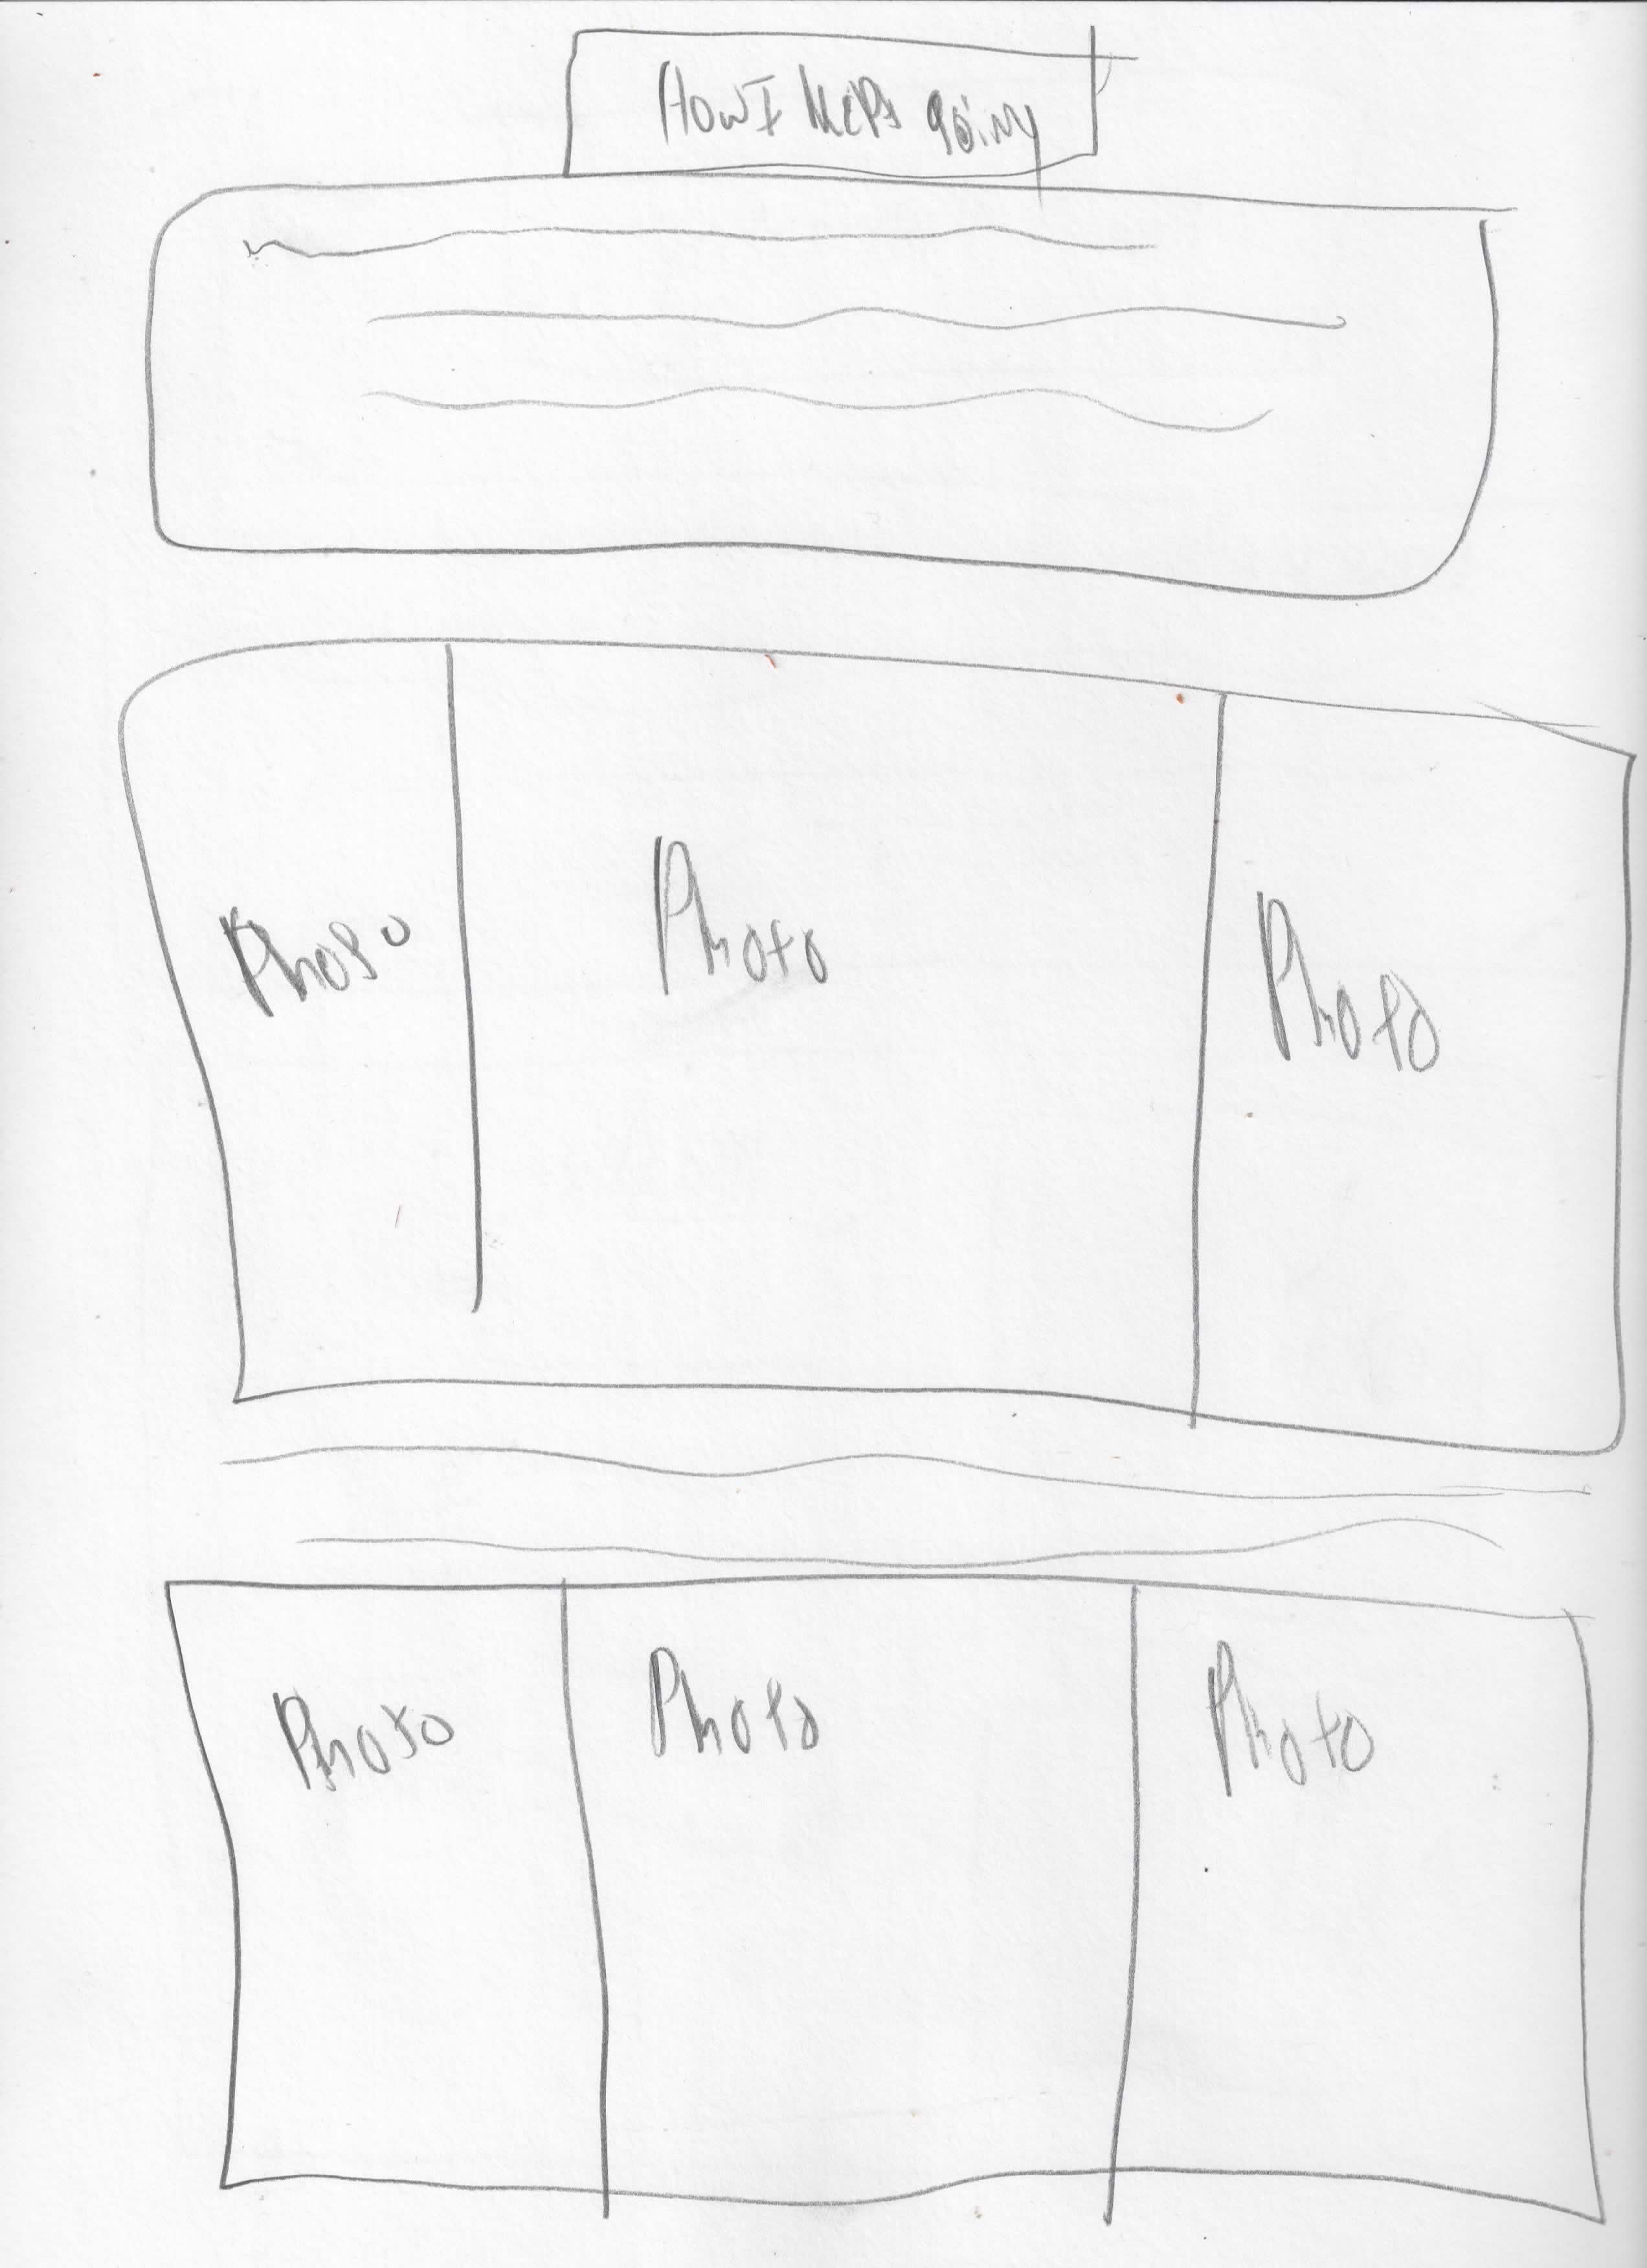 How I keeps going
Photo Photo Photo
Photo Photo Photo